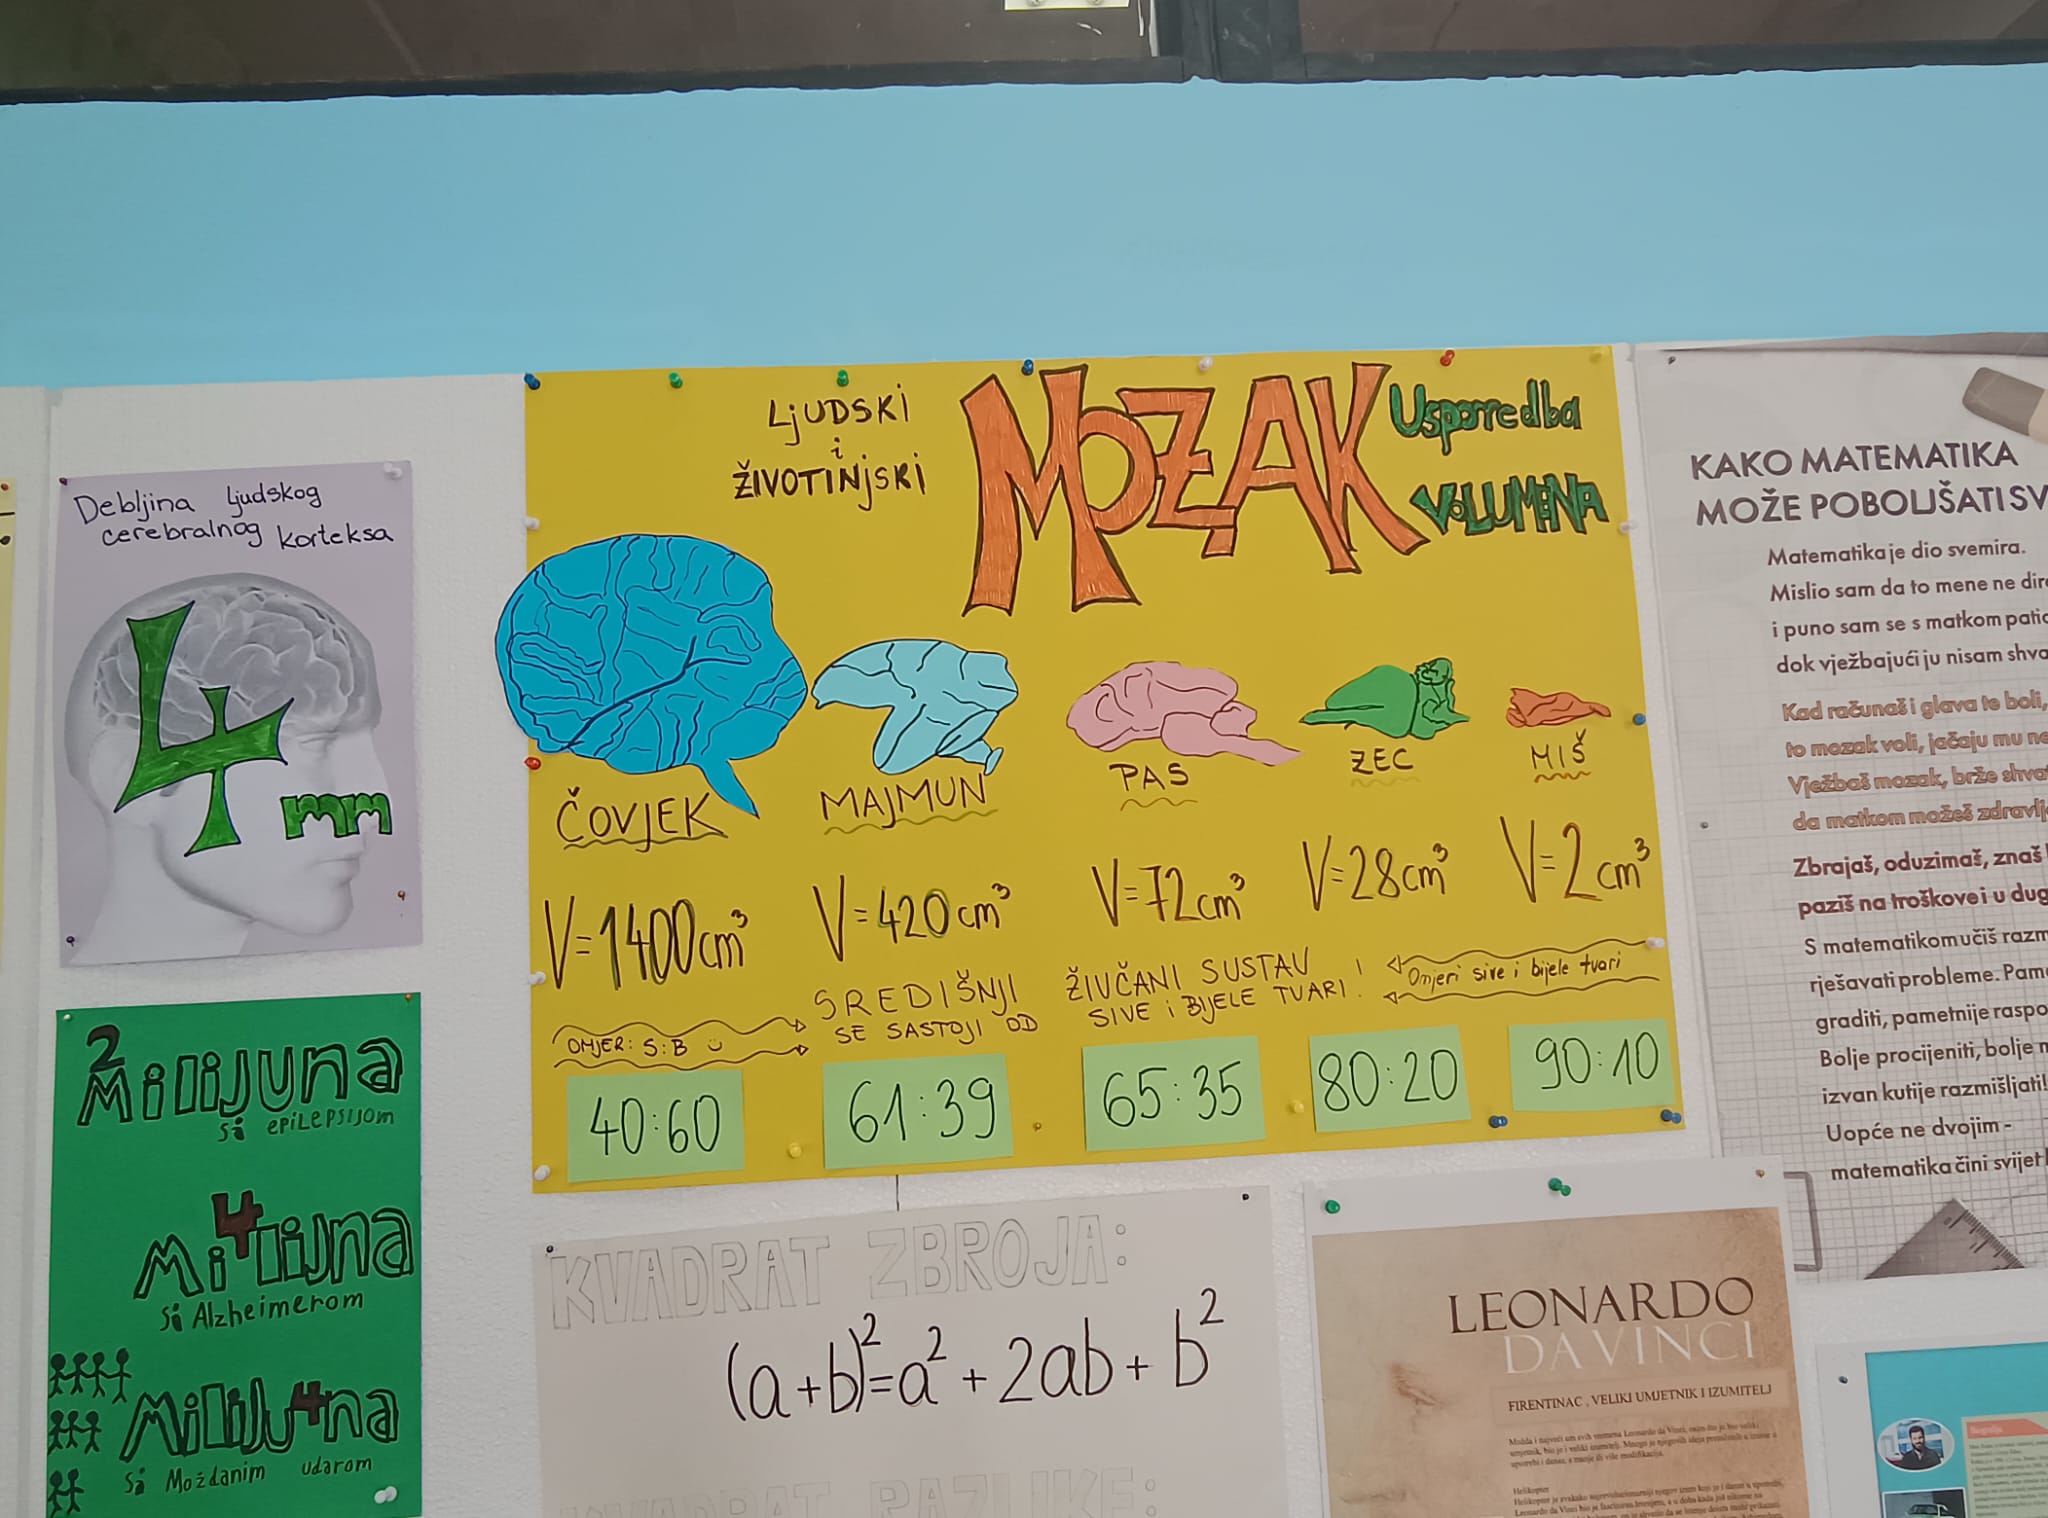 Debljina ljudskog
cerebralnog korteksa
4
mm
2
Milijuna
S epilepsijom
4
Milijna
S Alzheimerom
Miliju4na
S Moždanim udarom
LJUDSKI
i
ŽIVOTINJSKI
MOZAK
Usporedba
VOLUMENA
ČOVJEK
MAJMUN
PAS
ZEC
MIŠ
V=1400cm³
V=420cm³
V=72cm³
V=28cm³
V=2cm³
SREDIŠNJI ŽIVČANI SUSTAV
SE SASTOJI OD SIVE i BIJELE TVARI!
Omjeri sive i bijele tvari
OMJER: S:B
40:60
61:39
65:35
80:20
90:10
KVADRAT ZBROJA:
(a+b)²=a²+2ab+b²
KVADRAT RAZLIKE:
KAKO MATEMATIKA
MOŽE POBOLJŠATI SV
Matematika je dio svemira.
Mislio sam da to mene ne dira
i puno sam se s matkom patio
dok vježbajući ju nisam shva
Kad računaš i glava te boli,
to mozak voli, jačaju mu ne
Vježbaš mozak, brže shvat
da matkom možeš zdravlje
Zbrajaš, oduzimaš, znaš
paziš na troškove i u dug
S matematikom učiš razm
rješavati probleme. Pam
graditi, pametnije raspo
Bolje procijeniti, bolje
izvan kutije razmišljati!
Uopće ne dvojim -
matematika čini svijet
LEONARDO
DA VINCI
FIRENTINAC , VELIKI UMJETNIK I IZUMITELJ
Možda i najveći um svih vremena Leonardo da Vinci, osim što je bio veliki
umjetnik, bio je i veliki izumitelj. Mnoge je njegovih ideja
upotrebi i danas, a manje ili više modificirana.
Helikopter